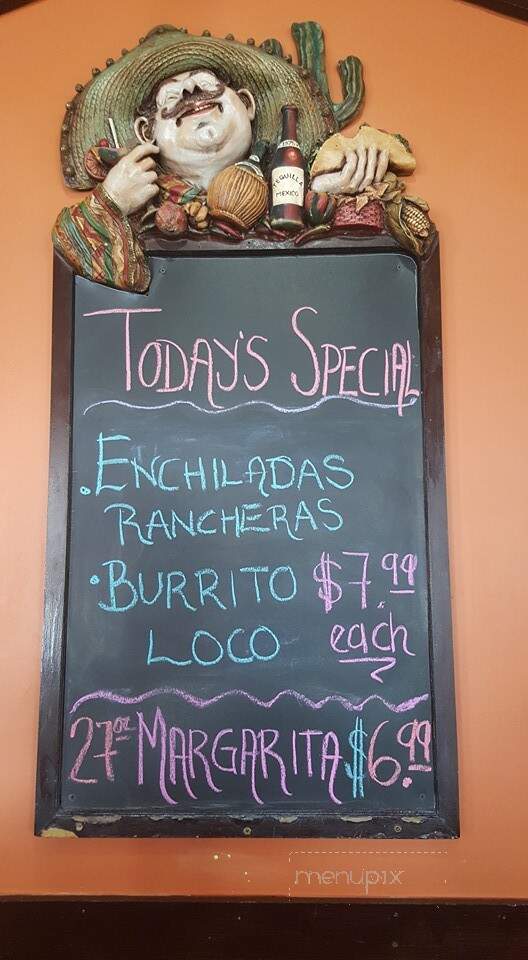 TEQUILLA
MEXICO
TODAY'S SPECIAL
. ENCHILADAS
RANCHERAS
• BURRITO $7.99
LOCO each
27oz MARGARITA $6.99
menupix